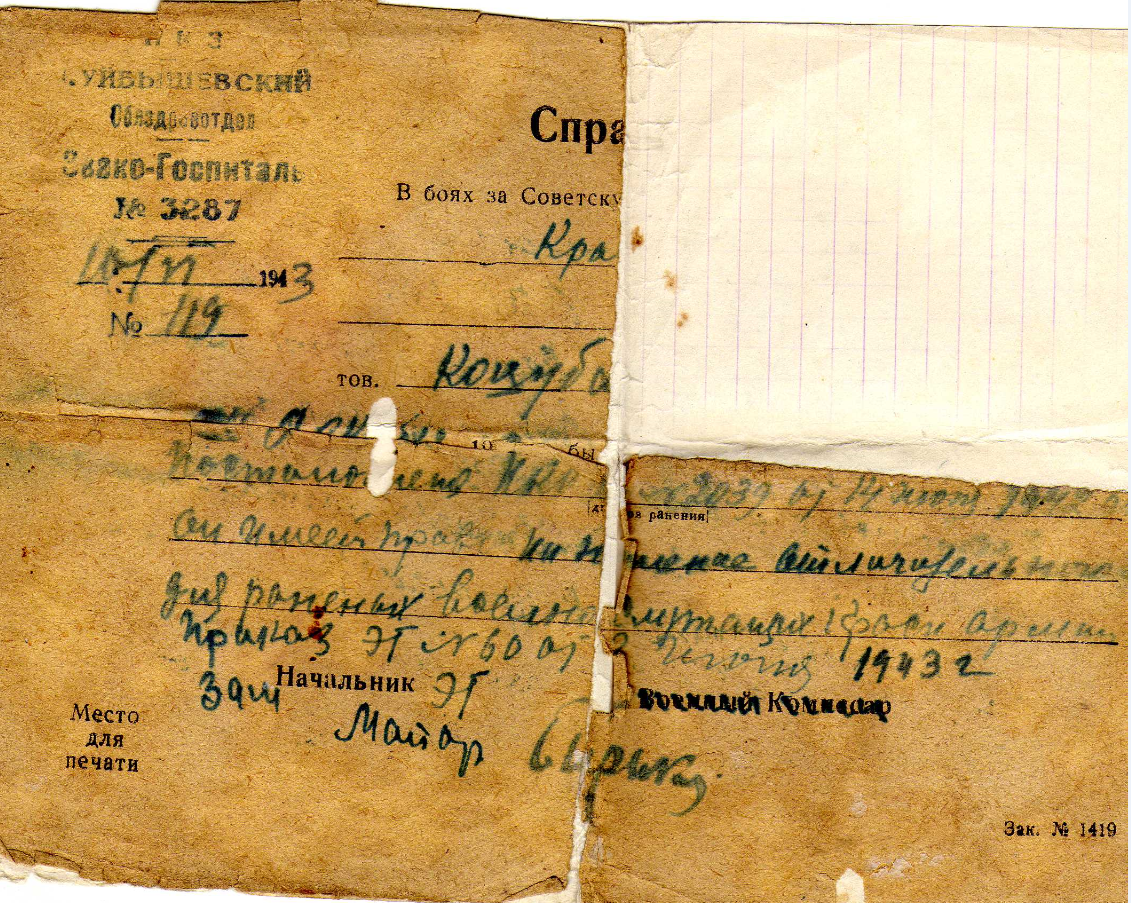 НКЗ
.УЙБЫШЕВСКИЙ
Облздравотдел
Эвако-Госпиталь
№ 3287
1943
№ 119
Спра
В боях за Советску
Кра
тов. Коцуба
19 бы
Постановлена НКО №2039 от 14 июля 1942
ранения
он имеет право на ношение отличительного
для раненых военнослужащих Крас армии
Приказ ЭГ №60 от 2 Июня 1943 г
Зам Начальник ЭГ Военный Комиссар
Майор
Место
для
печати
Зак. № 1419